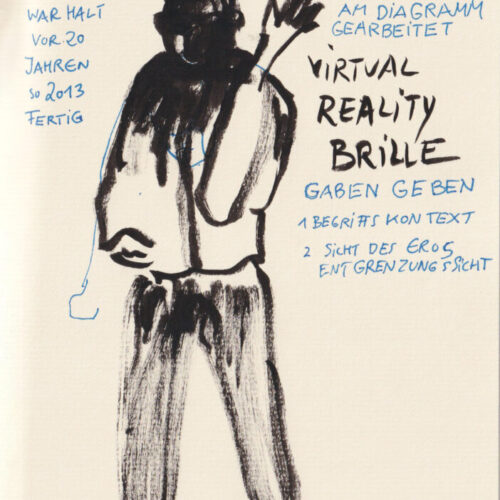 WAR HALT
VOR 20
JAHREN
SO 2013
FERTIG
AM DIAGRAMM
GEARBEITET
VIRTUAL
REALITY
BRILLE
GABEN GEBEN
1 BEGRIFFS KONTEXT
2 SICHT DES EROS
ENTGRENZUNGSSICHT